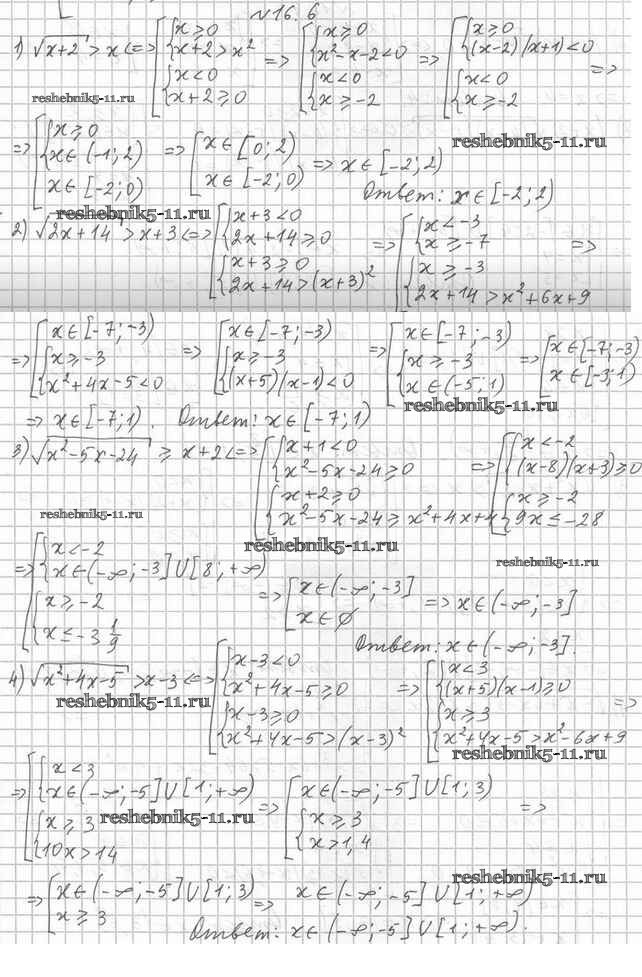 №16.6
1) √(x+2) > x <=> [ { x ≥ 0 ; x+2 > x² } ; { x < 0 ; x+2 ≥ 0 } => [ { x ≥ 0 ; x²-x-2 < 0 } ; { x < 0 ; x ≥ -2 } => [ { x ≥ 0 ; (x-2)(x+1) < 0 } ; { x < 0 ; x ≥ -2 } =>
reshebnik5-11.ru
=> [ { x ≥ 0 ; x ∈ (-1; 2) } ; x ∈ [-2; 0) => [ x ∈ [0; 2) ; x ∈ [-2; 0) => x ∈ [-2; 2)
reshebnik5-11.ru
Ответ: x ∈ [-2; 2)
reshebnik5-11.ru
2) √(2x+14) > x+3 <=> [ { x+3 < 0 ; 2x+14 ≥ 0 } ; { x+3 ≥ 0 ; 2x+14 > (x+3)² } => [ { x < -3 ; x ≥ -7 } ; { x ≥ -3 ; 2x+14 > x²+6x+9 } =>
=> [ x ∈ [-7; -3) ; { x ≥ -3 ; x²+4x-5 < 0 } => [ x ∈ [-7; -3) ; { x ≥ -3 ; (x+5)(x-1) < 0 } => [ x ∈ [-7; -3) ; { x ≥ -3 ; x ∈ (-5; 1) } => [ x ∈ [-7; -3) ; x ∈ [-3; 1)
reshebnik5-11.ru
=> x ∈ [-7; 1). Ответ: x ∈ [-7; 1)
3) √(x²-5x-24) ≥ x+2 <=> [ { x+1 < 0 ; x²-5x-24 ≥ 0 } ; { x+2 ≥ 0 ; x²-5x-24 ≥ x²+4x+4 } => [ { x < -2 ; (x-8)(x+3) ≥ 0 } ; { x ≥ -2 ; 9x ≤ -28 }
reshebnik5-11.ru
reshebnik5-11.ru
reshebnik5-11.ru
=> [ { x < -2 ; x ∈ (-∞; -3] U [8; +∞) } ; { x ≥ -2 ; x ≤ -3 1/9 } => [ x ∈ (-∞; -3] ; x ∈ ∅ => x ∈ (-∞; -3]
Ответ: x ∈ (-∞; -3].
4) √(x²+4x-5) > x-3 <=> [ { x-3 < 0 ; x²+4x-5 ≥ 0 } ; { x-3 ≥ 0 ; x²+4x-5 > (x-3)² } => [ { x < 3 ; (x+5)(x-1) ≥ 0 } ; { x ≥ 3 ; x²+4x-5 > x²-6x+9 } =>
reshebnik5-11.ru
reshebnik5-11.ru
=> [ { x < 3 ; x ∈ (-∞; -5] U [1; +∞) } ; { x ≥ 3 ; 10x > 14 } => [ x ∈ (-∞; -5] U [1; 3) ; { x ≥ 3 ; x > 1,4 } =>
reshebnik5-11.ru
reshebnik5-11.ru
=> [ x ∈ (-∞; -5] U [1; 3) ; x ≥ 3 => x ∈ (-∞; -5] U [1; +∞)
Ответ: x ∈ (-∞; -5] U [1; +∞).